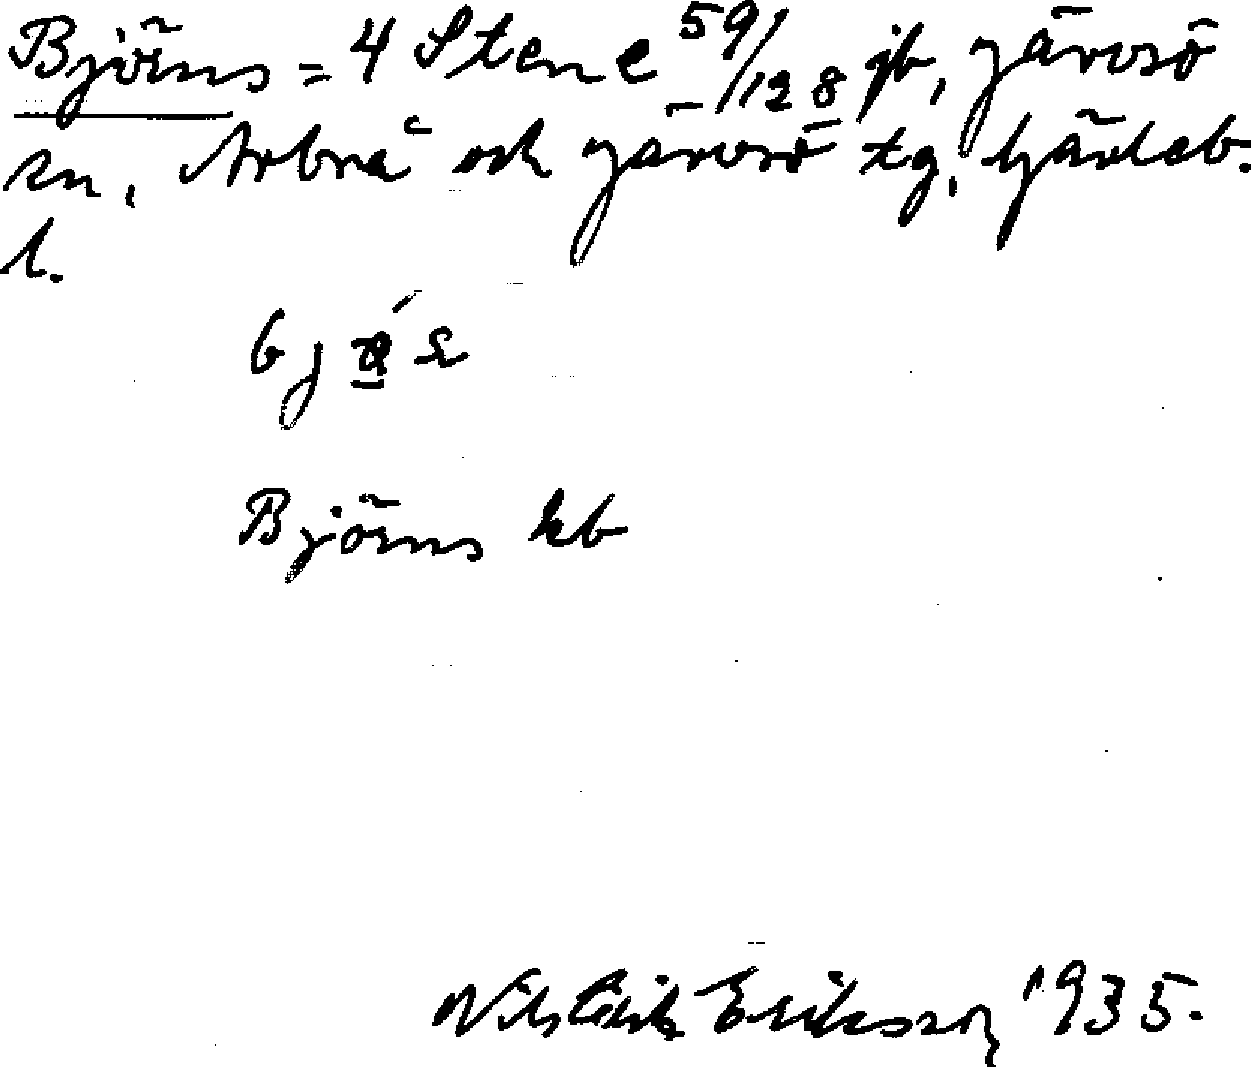 Björns = 4 Stene 59/128 jb, Järvsö
sn, Arbrå och Järvsö tg, Gävleb.
l.
Björns kb
Nils Erik Eriksson 1935.